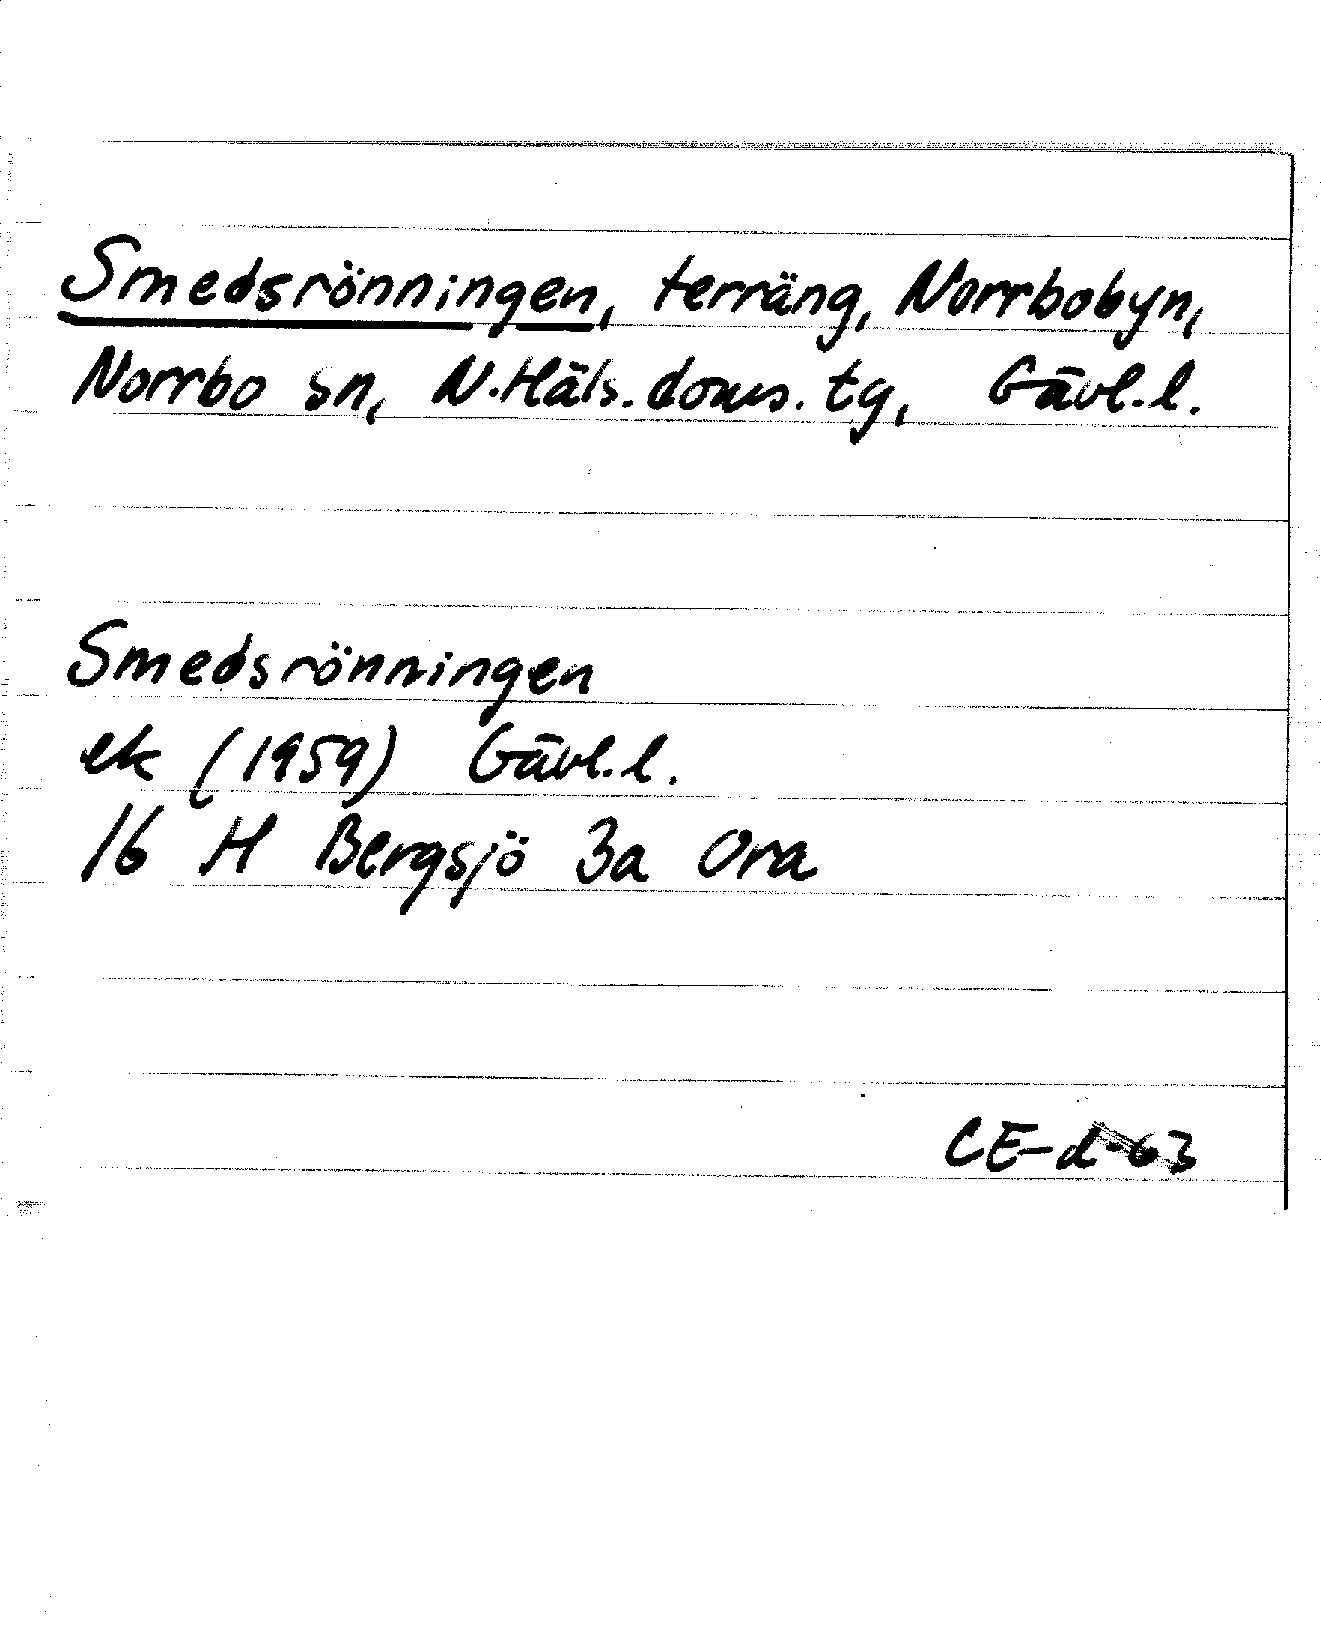 Smedsrönningen, terräng, Norrbobyn,
Norrbo sn, N.Häls.doms.tg, Gävl.l.
Smedsrönningen
ek (1959) Gävl.l.
16 H Bergsjö 3a Ora
CE-d-63